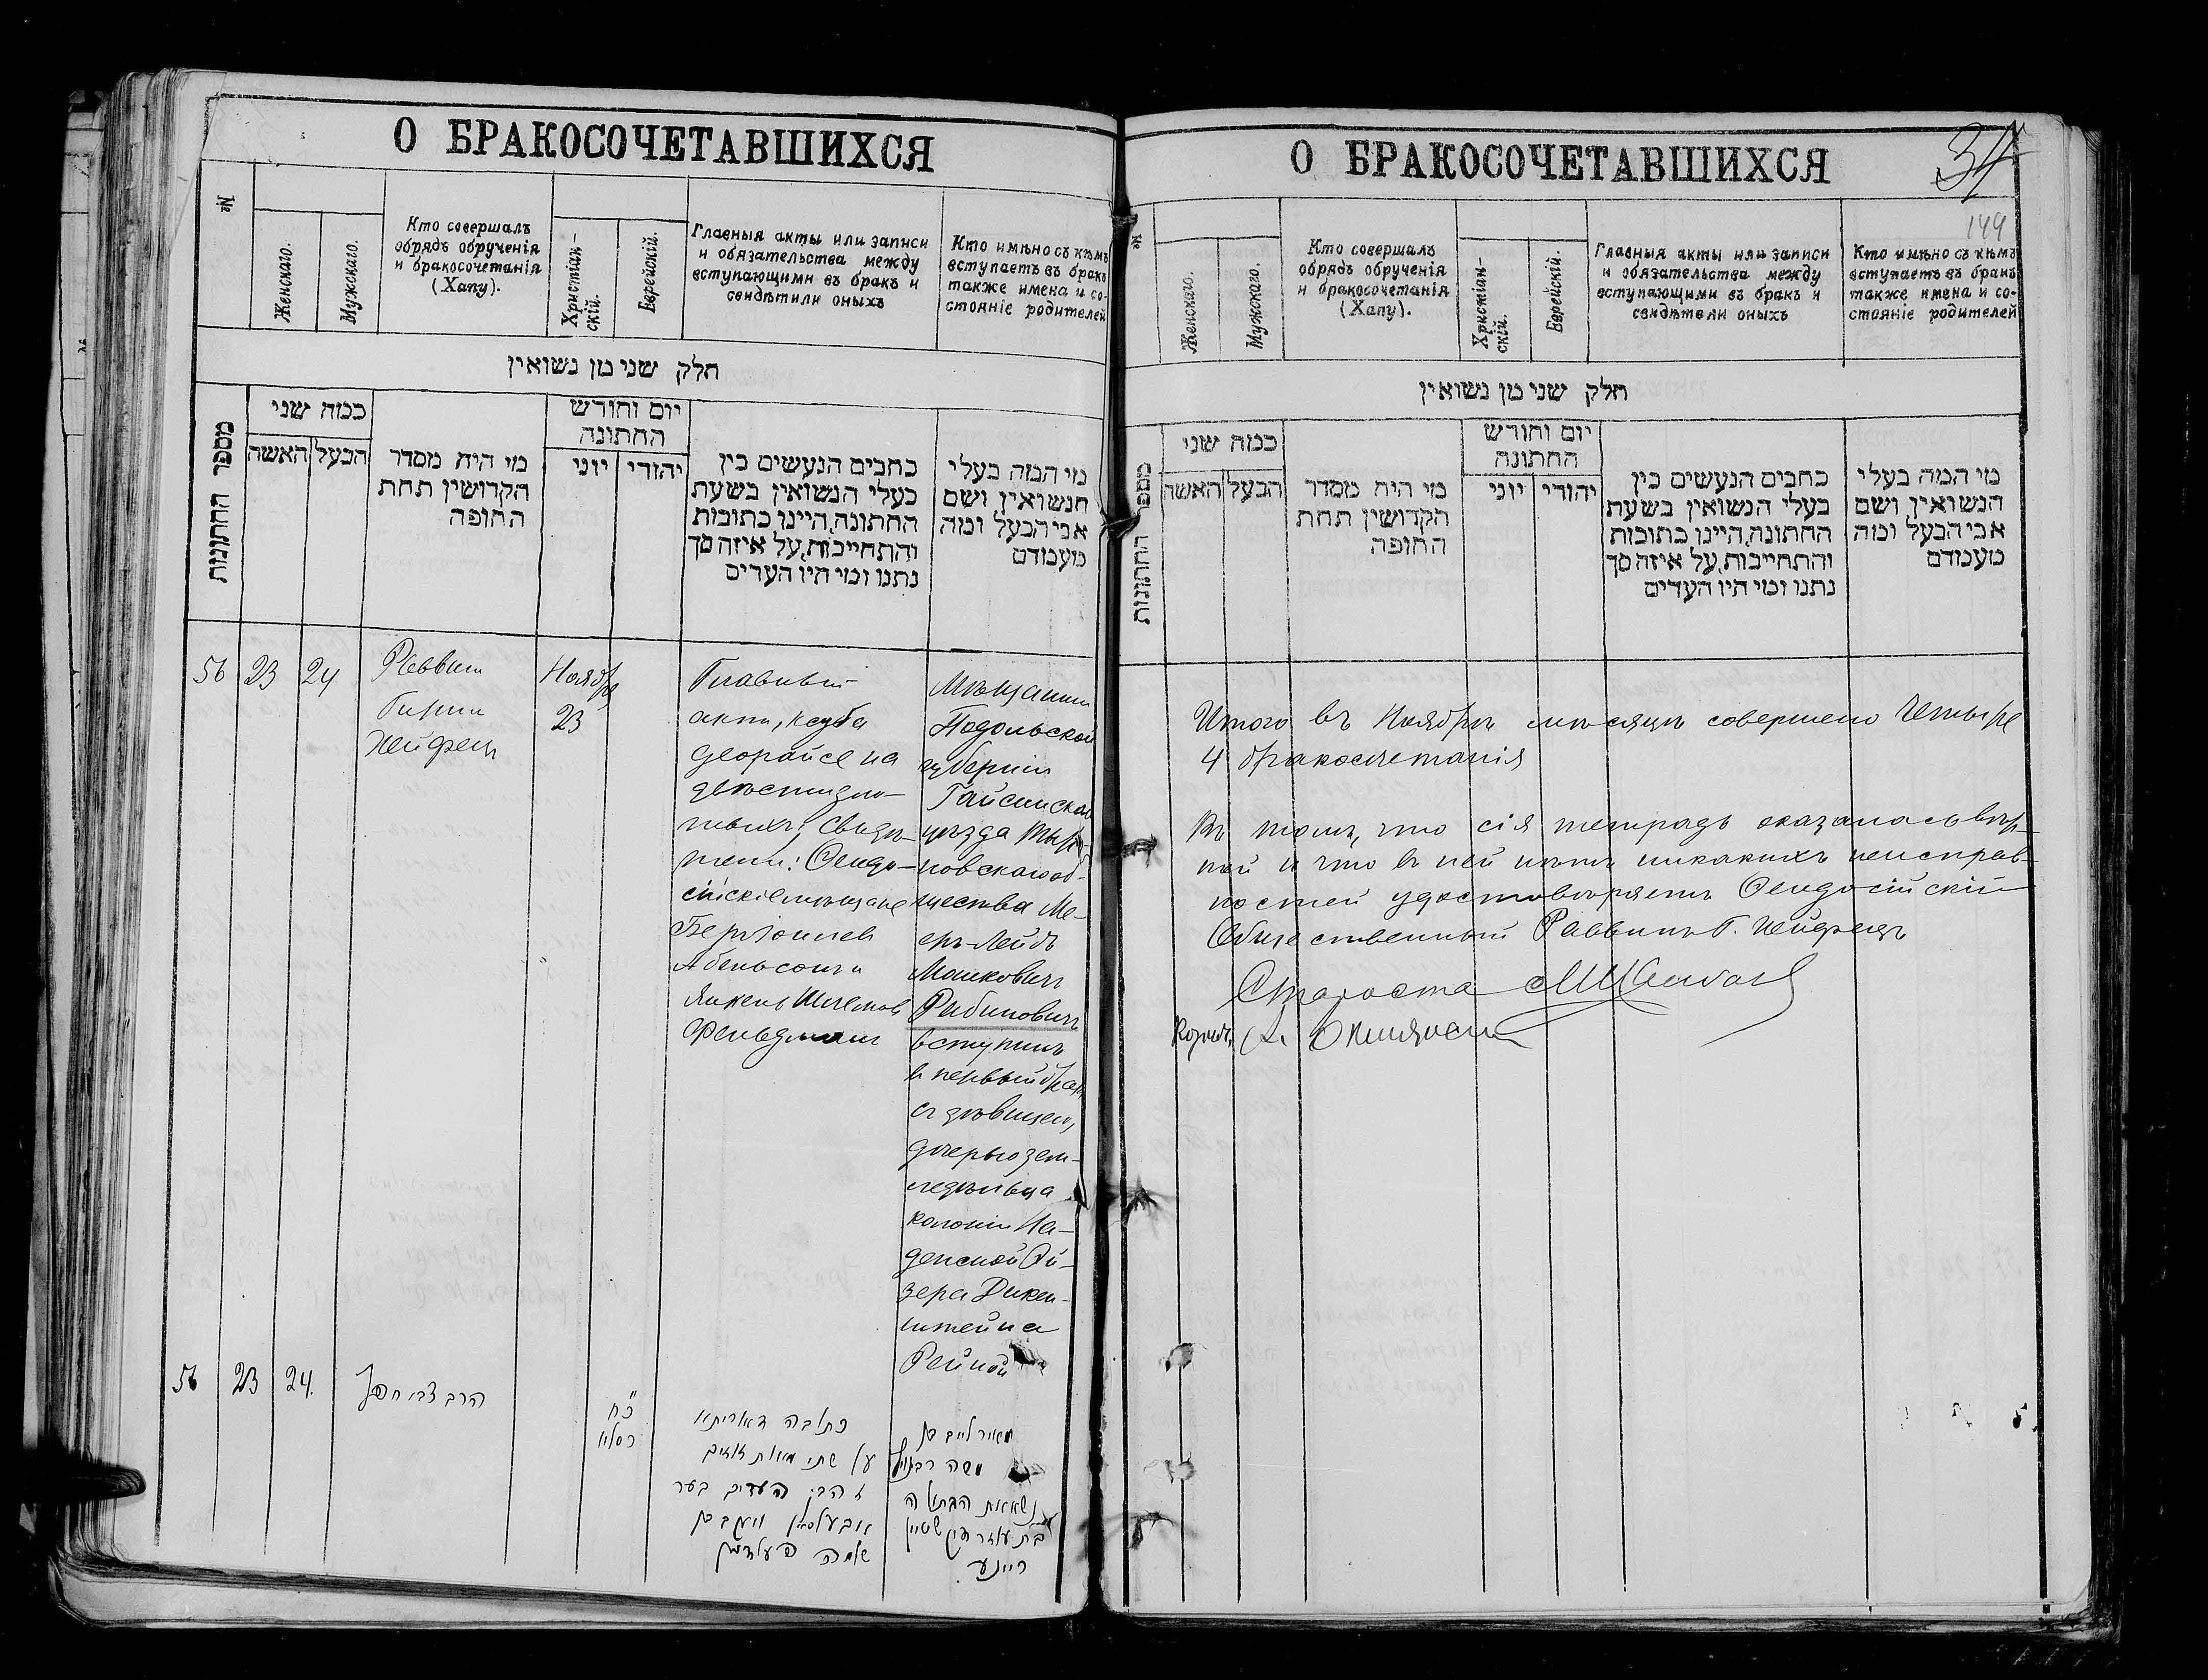 О БРАКОСОЧЕТАВШИХСЯ
№
Женскаго.
Мужскаго.
Кто совершалъ
обрядъ обрученія
и бракосочетанія
(Хапу).
Христіан-
скій.
Еврейскій.
Главныя акты или записи
и обязательства между
вступающими въ бракъ и
свидѣтили оныхъ
Кто имѣно съ кѣмъ
вступаетъ въ бракъ
также имена и со-
стояніе родителей
חלק שני מן נשואין
מספר החתונות
כמה שני
האשה
הבעל
מי היה מסדר
הקדושין תחת
החופה
יום וחודש
החתונה
יוני
יהודי
כתבים הנעשים בין
בעלי הנשואין בשעת
החתונה, היינו כתובות
והתחייבות, על איזה סך
נתנו ומי היו העדים
מי המה בעלי
הנשואין ושם
אבי הבעל ומה
מעמדם
56 23 24
Раввин
Гирш
Хейфец
Ноября
23
Главный
акт, ксуба
деорайсе на
двѣсти зло-
тыхъ; Свидѣ-
тели: Ѳеодо-
сійскіе мѣщане
Бер
Абельсон и
Янкель Шлемов
Фельдман
Мѣщанин
Подольской
губерніи
Гайсинскаго
уѣзда
новскаго об-
щества Ме-
ер-Лейб
Мошкович
Рабинович
вступил
в первый брак
с дѣвицею,
дочерью зем-
ледѣльца
колоніи На-
Ой-
зера Дикен-
штейна
Рейной
56 23 24.
הרב צבי חפץ
כח
כסליו
כתובה דאריתא
על שתי מאות זוזים
והעדים בער
אבעלסאן ויעקב בן
שלמה פעלדמן
מאיר לייב בן
משה רבינוויץ
נשא את הבתולה
בת עוזר דיקנשטיין
ריינע.
О БРАКОСОЧЕТАВШИХСЯ
34
149
№
Женскаго.
Мужскаго.
Кто совершалъ
обрядъ обрученія
и бракосочетанія
(Хапу).
Христіан-
скій.
Еврейскій.
Главныя акты или записи
и обязательства между
вступающими въ бракъ и
свидѣтели оныхъ
Кто имѣно съ кѣмъ
вступаетъ въ бракъ
также имена и со-
стояніе родителей
חלק שני מן נשואין
מספר החתונות
כמה שני
האשה
הבעל
מי היה מסדר
הקדושין תחת
החופה
יום וחודש
החתונה
יוני
יהודי
כתבים הנעשים בין
בעלי הנשואין בשעת
החתונה, היינו כתובות
והתחייבות, על איזה סך
נתנו ומי היו העדים
מי המה בעלי
הנשואין ושם
אבי הבעל ומה
מעמדם
Итого въ Ноябрѣ мѣсяцѣ совершено Четыре
4 бракосочетанія
Въ томъ, что сія тетрадь оказалась вѣр-
ной и что в ней нѣтъ никакихъ неисправ-
ностей удостовѣряетъ Ѳеодосійскій
Общественный Раввинъ Г. Хейфецъ
Староста
Казнач.